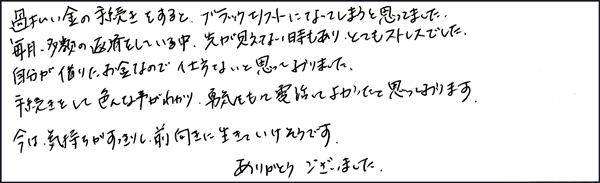 過払い金の手続きをすると、ブラックリストになってしまうと思ってました。
毎月、多額の返済をしている中、先が見えない時もあり、とてもストレスでした。
自分が借りたお金なので仕方ないと思っておりました。
手続きをして色んな事がわかり、勇気をもって電話してよかったと思っております。
今は、気持ちがすっきりし、前向きに生きていけそうです。
ありがとうございました。